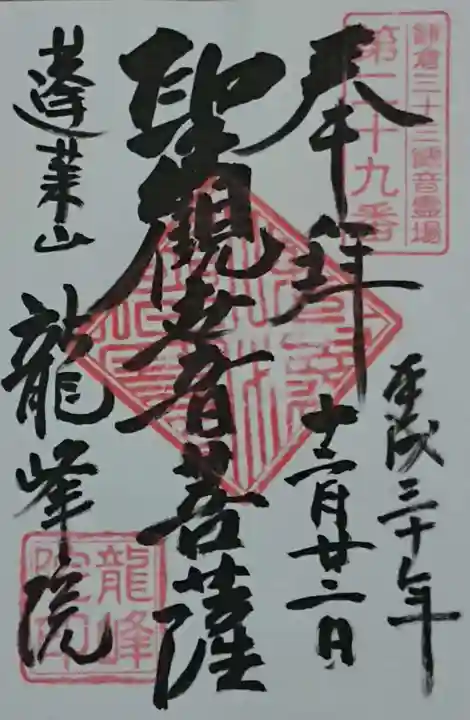 鎌倉三十三観音霊場
第二十九番
平成三十年
十二月廿二日
奉拝
聖觀世音菩薩
蓬莱山
龍峰院
龍峰
院印